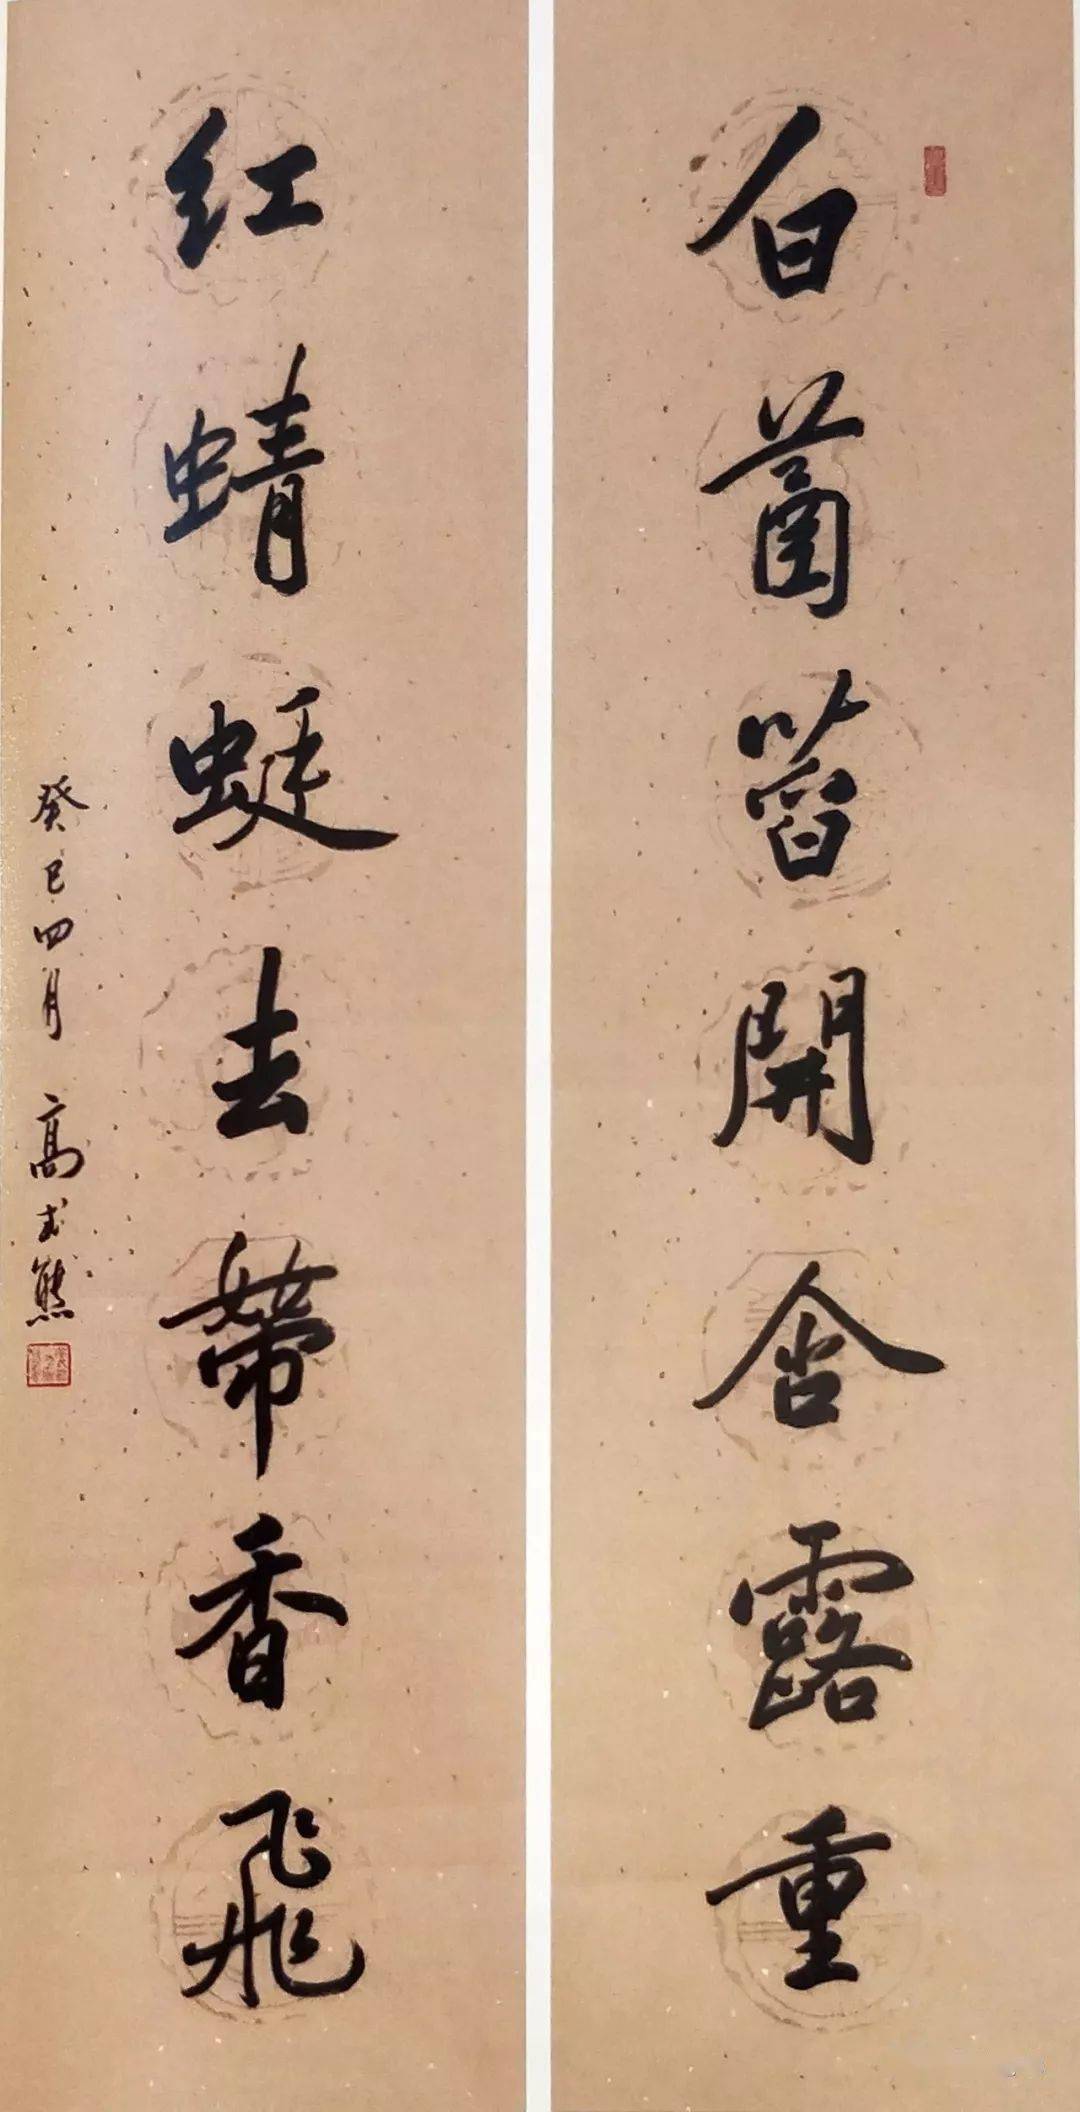 白菡萏開含露重
红蜻蜓去帶香飛
癸巳四月 高式熊